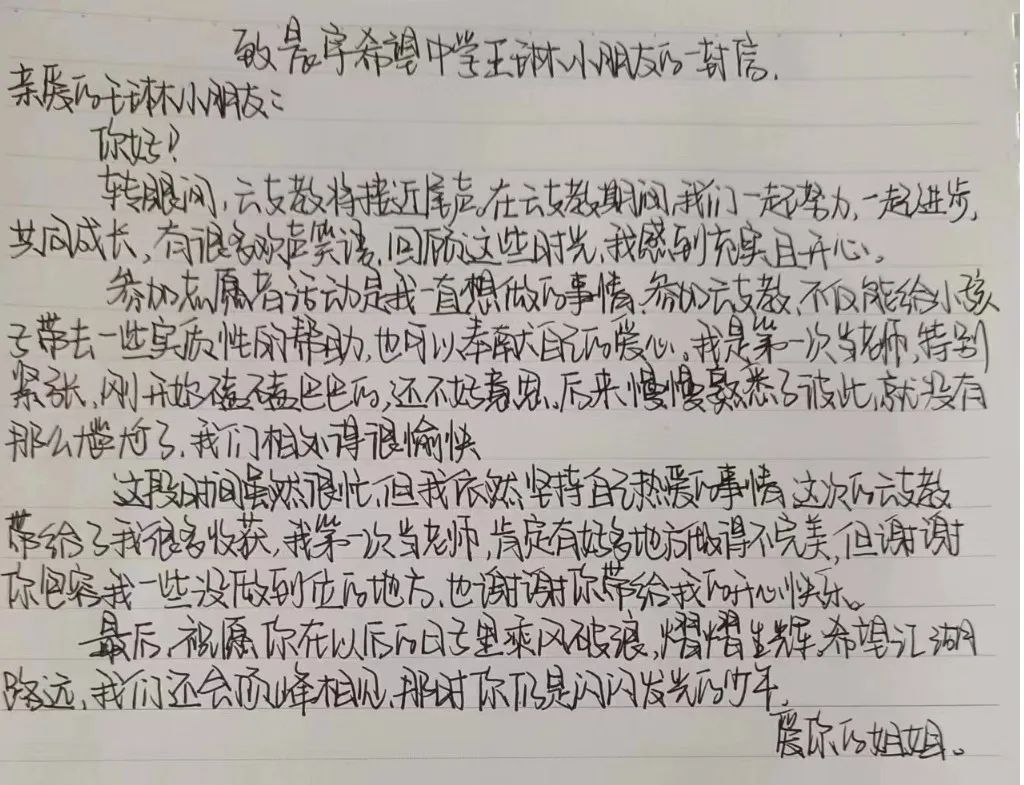 致晨宇希望中学王琳小朋友的一封信.
亲爱的王琳小朋友:
你好!
转眼间,云支教将接近尾声。在云支教期间,我们一起努力,一起进步,
共同成长,有很多欢声笑语,回顾这些时光,我感到充实且开心。
参加志愿者活动是我一直想做的事情,参加云支教,不仅能给小孩
子带去一些实质性的帮助,也可以奉献自己的爱心。我是第一次当老师,特别
紧张,刚开始磕磕巴巴的,还不好意思。后来慢慢熟悉了彼此,就没有
那么尴尬了,我们相处得很愉快
这段时间虽然很忙,但我依然坚持自己热爱的事情,这次的云支教
带给了我很多收获,我第一次当老师,肯定有好多地方做得不完美,但谢谢
你包容我一些没做到位的地方,也谢谢你带给我的开心快乐。
最后,祝愿你在以后的日子里乘风破浪,熠熠生辉。希望江湖
路远,我们还会顶峰相见,那时你仍是闪闪发光的少年.
爱你的姐姐。